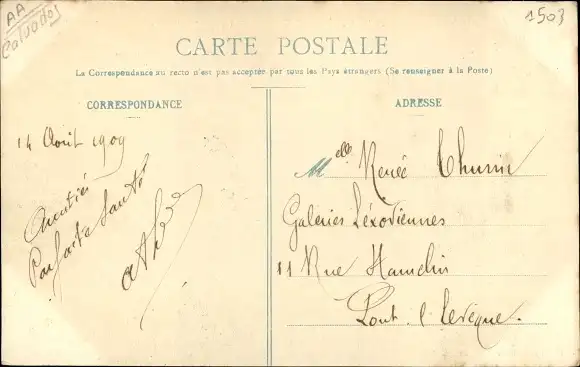 AA
Calvados
1503
CARTE POSTALE
La Correspondance au recto n'est pas acceptée par tous les Pays étrangers (Se renseigner à la Poste)
CORRESPONDANCE
14 Août 1909
Amitiés
Parfaite Santé
ADRESSE
Melle Renée Thurin
Galeries Léxoviennes
11 Rue Hamelin
Pont l'Evèque.